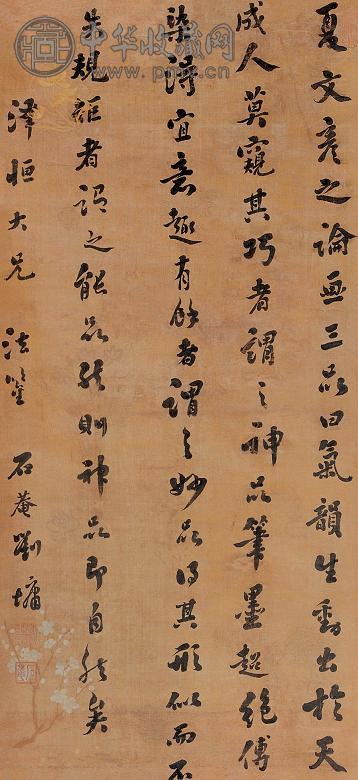 夏文彥之論畫三品曰氣韻生動出於天
成人莫窺其巧者謂之神品筆墨超絶傅
染得宜意趣有餘者謂之妙品得其形似而不
失規矩者謂之能品然則神品即自然矣
澤恒大兄 法鑒 石菴劉墉
中华收藏网